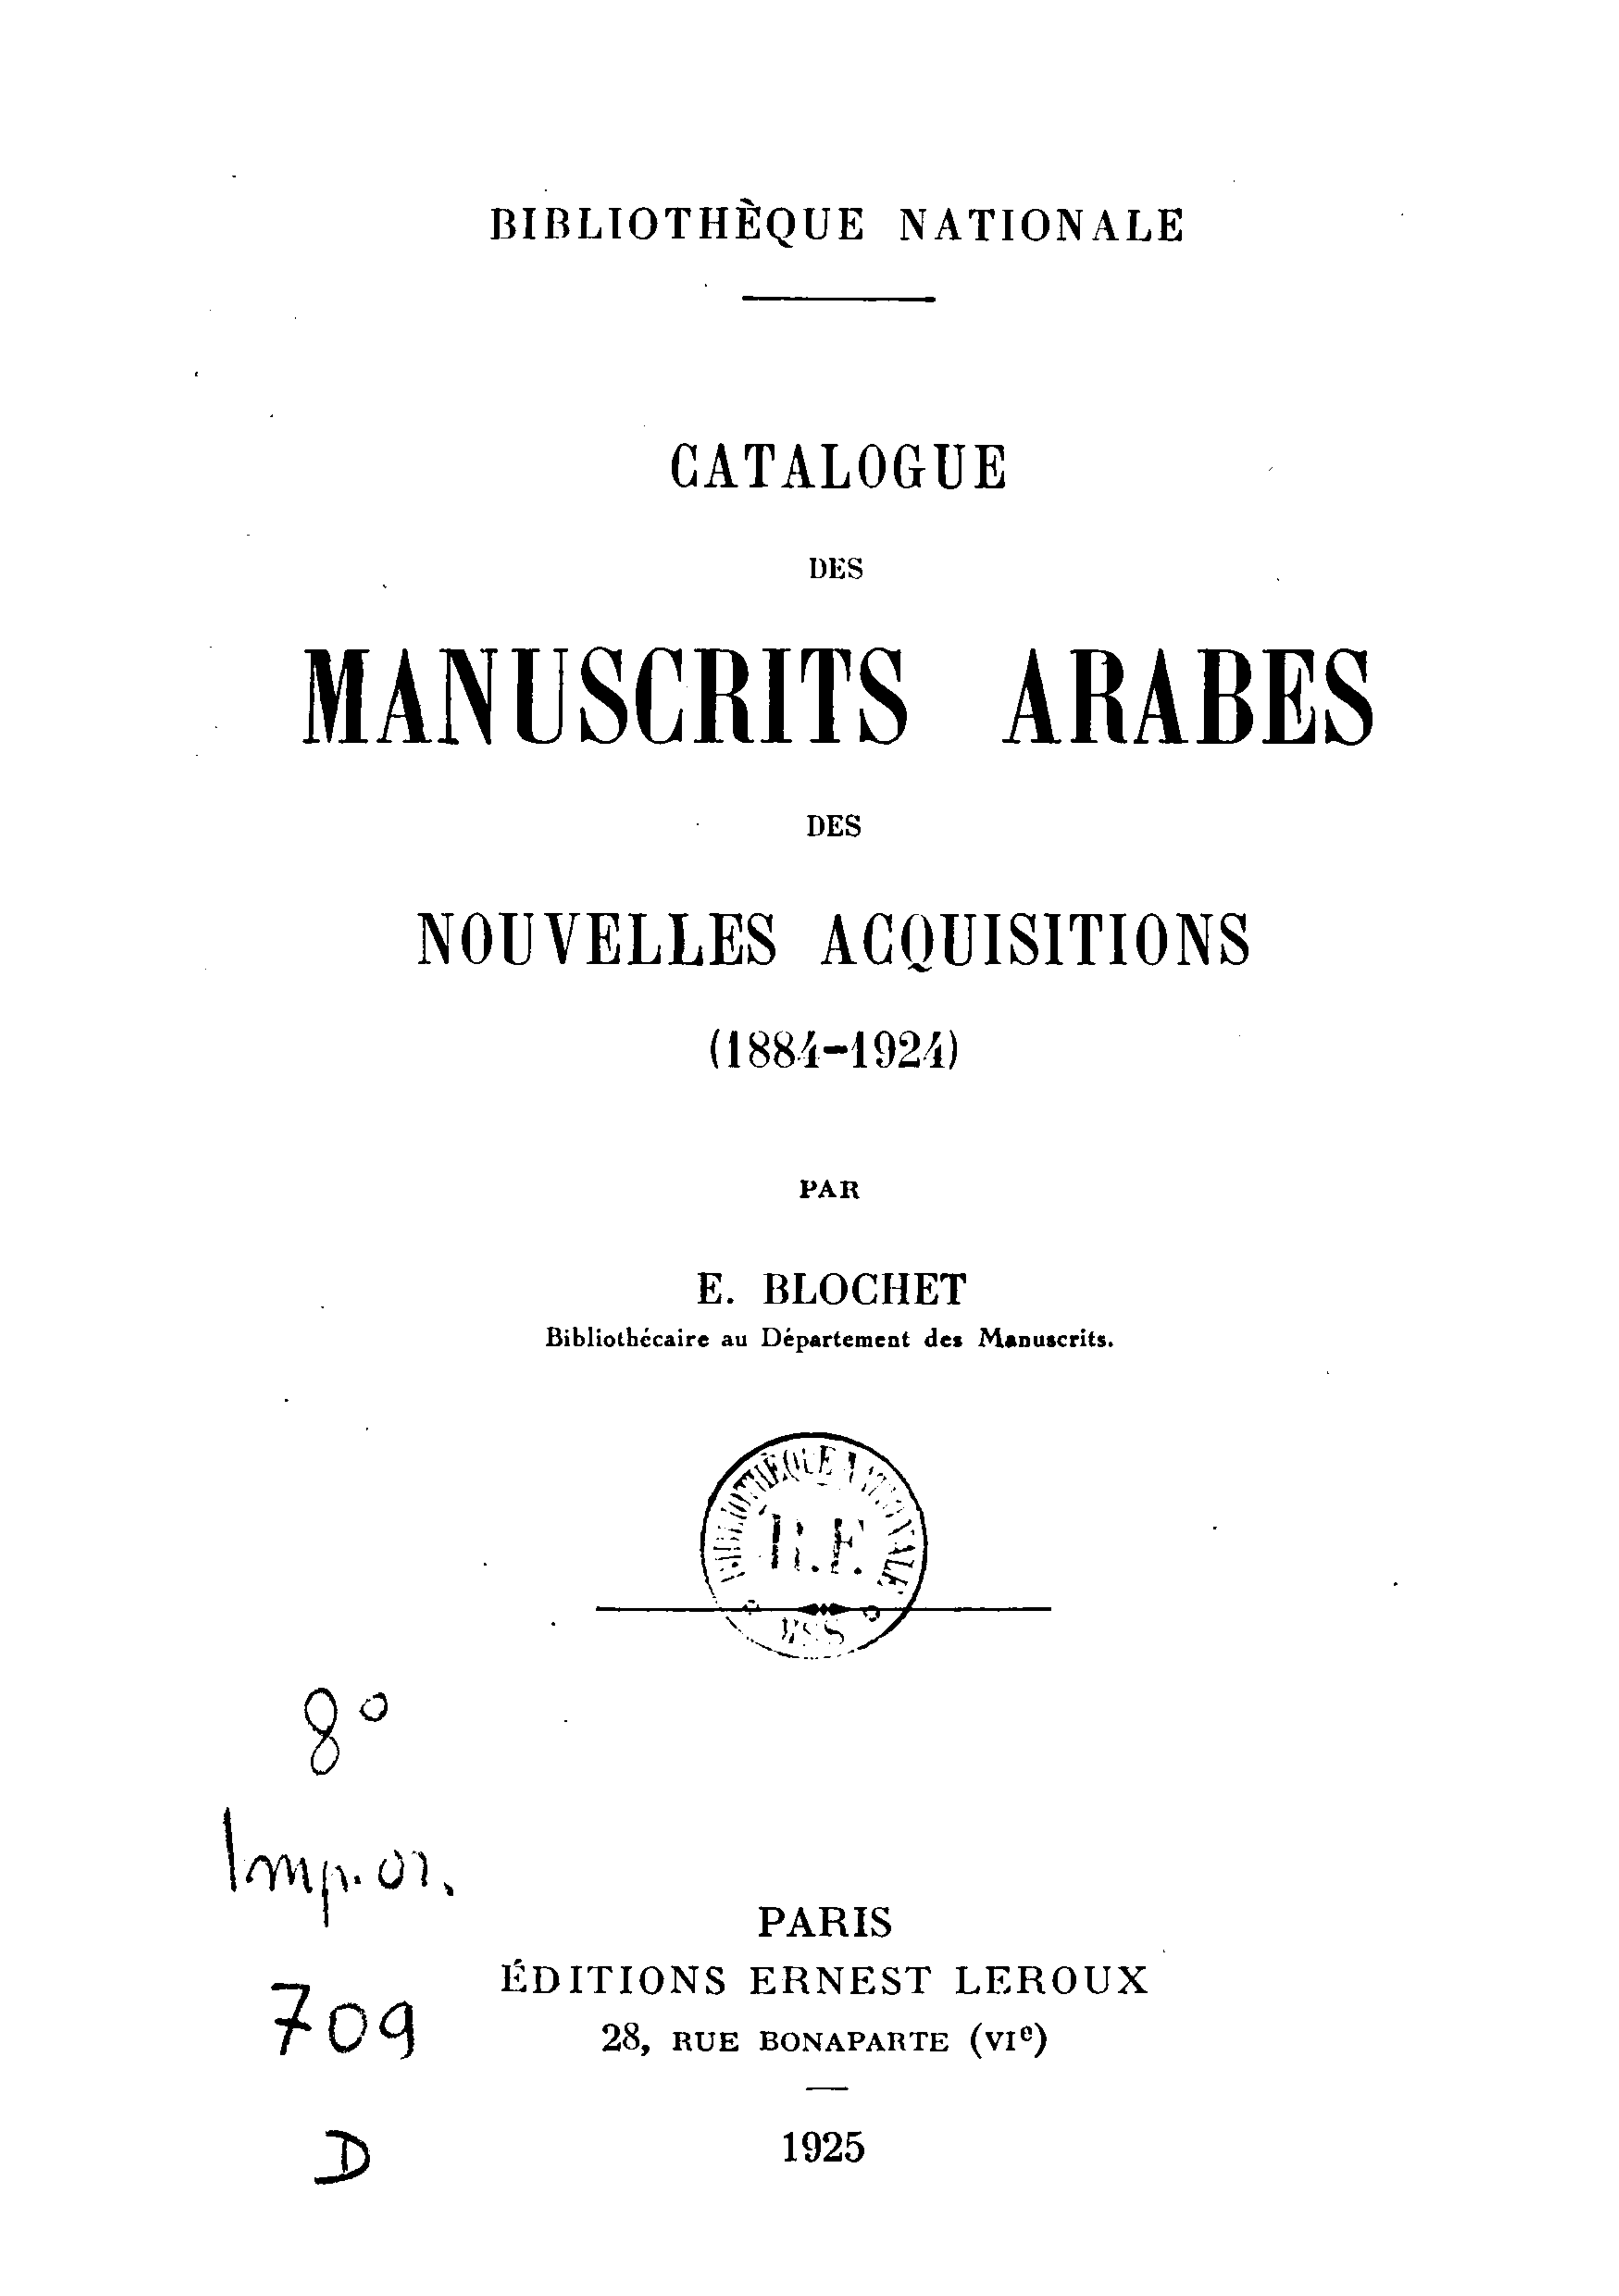 BIBLIOTHÈQUE NATIONALE
CATALOGUE
DES
MANUSCRITS ARABES
DES
NOUVELLES ACQUISITIONS
(1884-1924)
PAR
E. BLOCHET
Bibliothécaire au Département des Manuscrits.
BIBLIOTHÈQUE NATIONALE
R.F.
MSS
8°
Imp. or.
709
D
PARIS
ÉDITIONS ERNEST LEROUX
28, RUE BONAPARTE (VIe)
1925